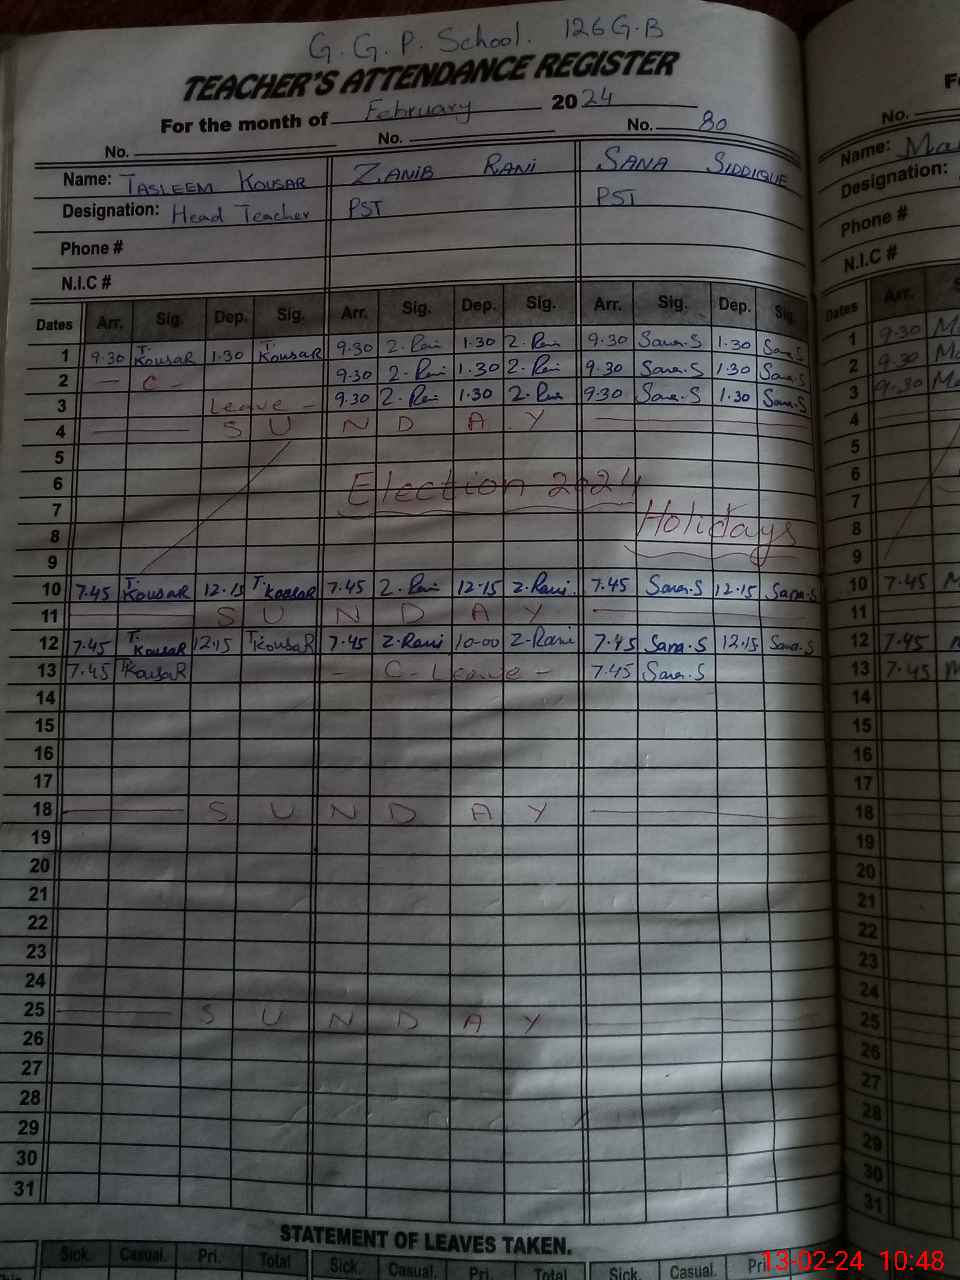 G.G.P. School. 126 G.B
TEACHER'S ATTENDANCE REGISTER
For the month of February 2024
No. No. No. 80
Name: TASLEEM KOUSAR ZANIB RANI SANA SIDDIQUE
Designation: Head Teacher PST PST
Phone #
N.I.C #
Dates Arr. Sig. Dep. Sig. Arr. Sig. Dep. Sig. Arr. Sig. Dep. Sig.
1 9.30 T. KOUSAR 1.30 T. KOUSAR 9.30 Z.Rani 1.30 Z.Rani 9.30 Sana.S 1.30 Sana.S
2 — C - 9.30 Z.Rani 1.30 Z.Rani 9.30 Sana.S 1.30 Sana.S
3 Leave - 9.30 Z.Rani 1.30 Z.Rani 9.30 Sana.S 1.30 Sana.S
4 S U N D A Y
5
6 Election 2024
7
8 Holidays
9
10 7.45 T. KOUSAR 12.15 T. KOUSAR 7.45 Z.Rani 12.15 Z.Rani 7.45 Sana.S 12.15 Sana.S
11 S U N D A Y
12 7.45 T. KOUSAR 12.15 T. KOUSAR 7.45 Z.Rani 10-00 Z-Rani 7.45 Sana.S 12.15 Sana.S
13 7.45 T. KOUSAR - C-Leave - 7.45 Sana.S
14
15
16
17
18 S U N D A Y
19
20
21
22
23
24
25 S U N D A Y
26
27
28
29
30
31
STATEMENT OF LEAVES TAKEN.
Sick. Casual. Pri. Total Sick. Casual. Pri. Total Sick. Casual. Pri.
No.
Name: Ma
Designation:
Phone #
N.I.C #
Dates Arr.
1 9.30
2 9.30
3 9.30
4
5
6
7
8
9
10 7.45
11
12 7.45
13 7.45
14
15
16
17
18
19
20
21
22
23
24
25
26
27
28
29
30
31
13-02-24 10:48